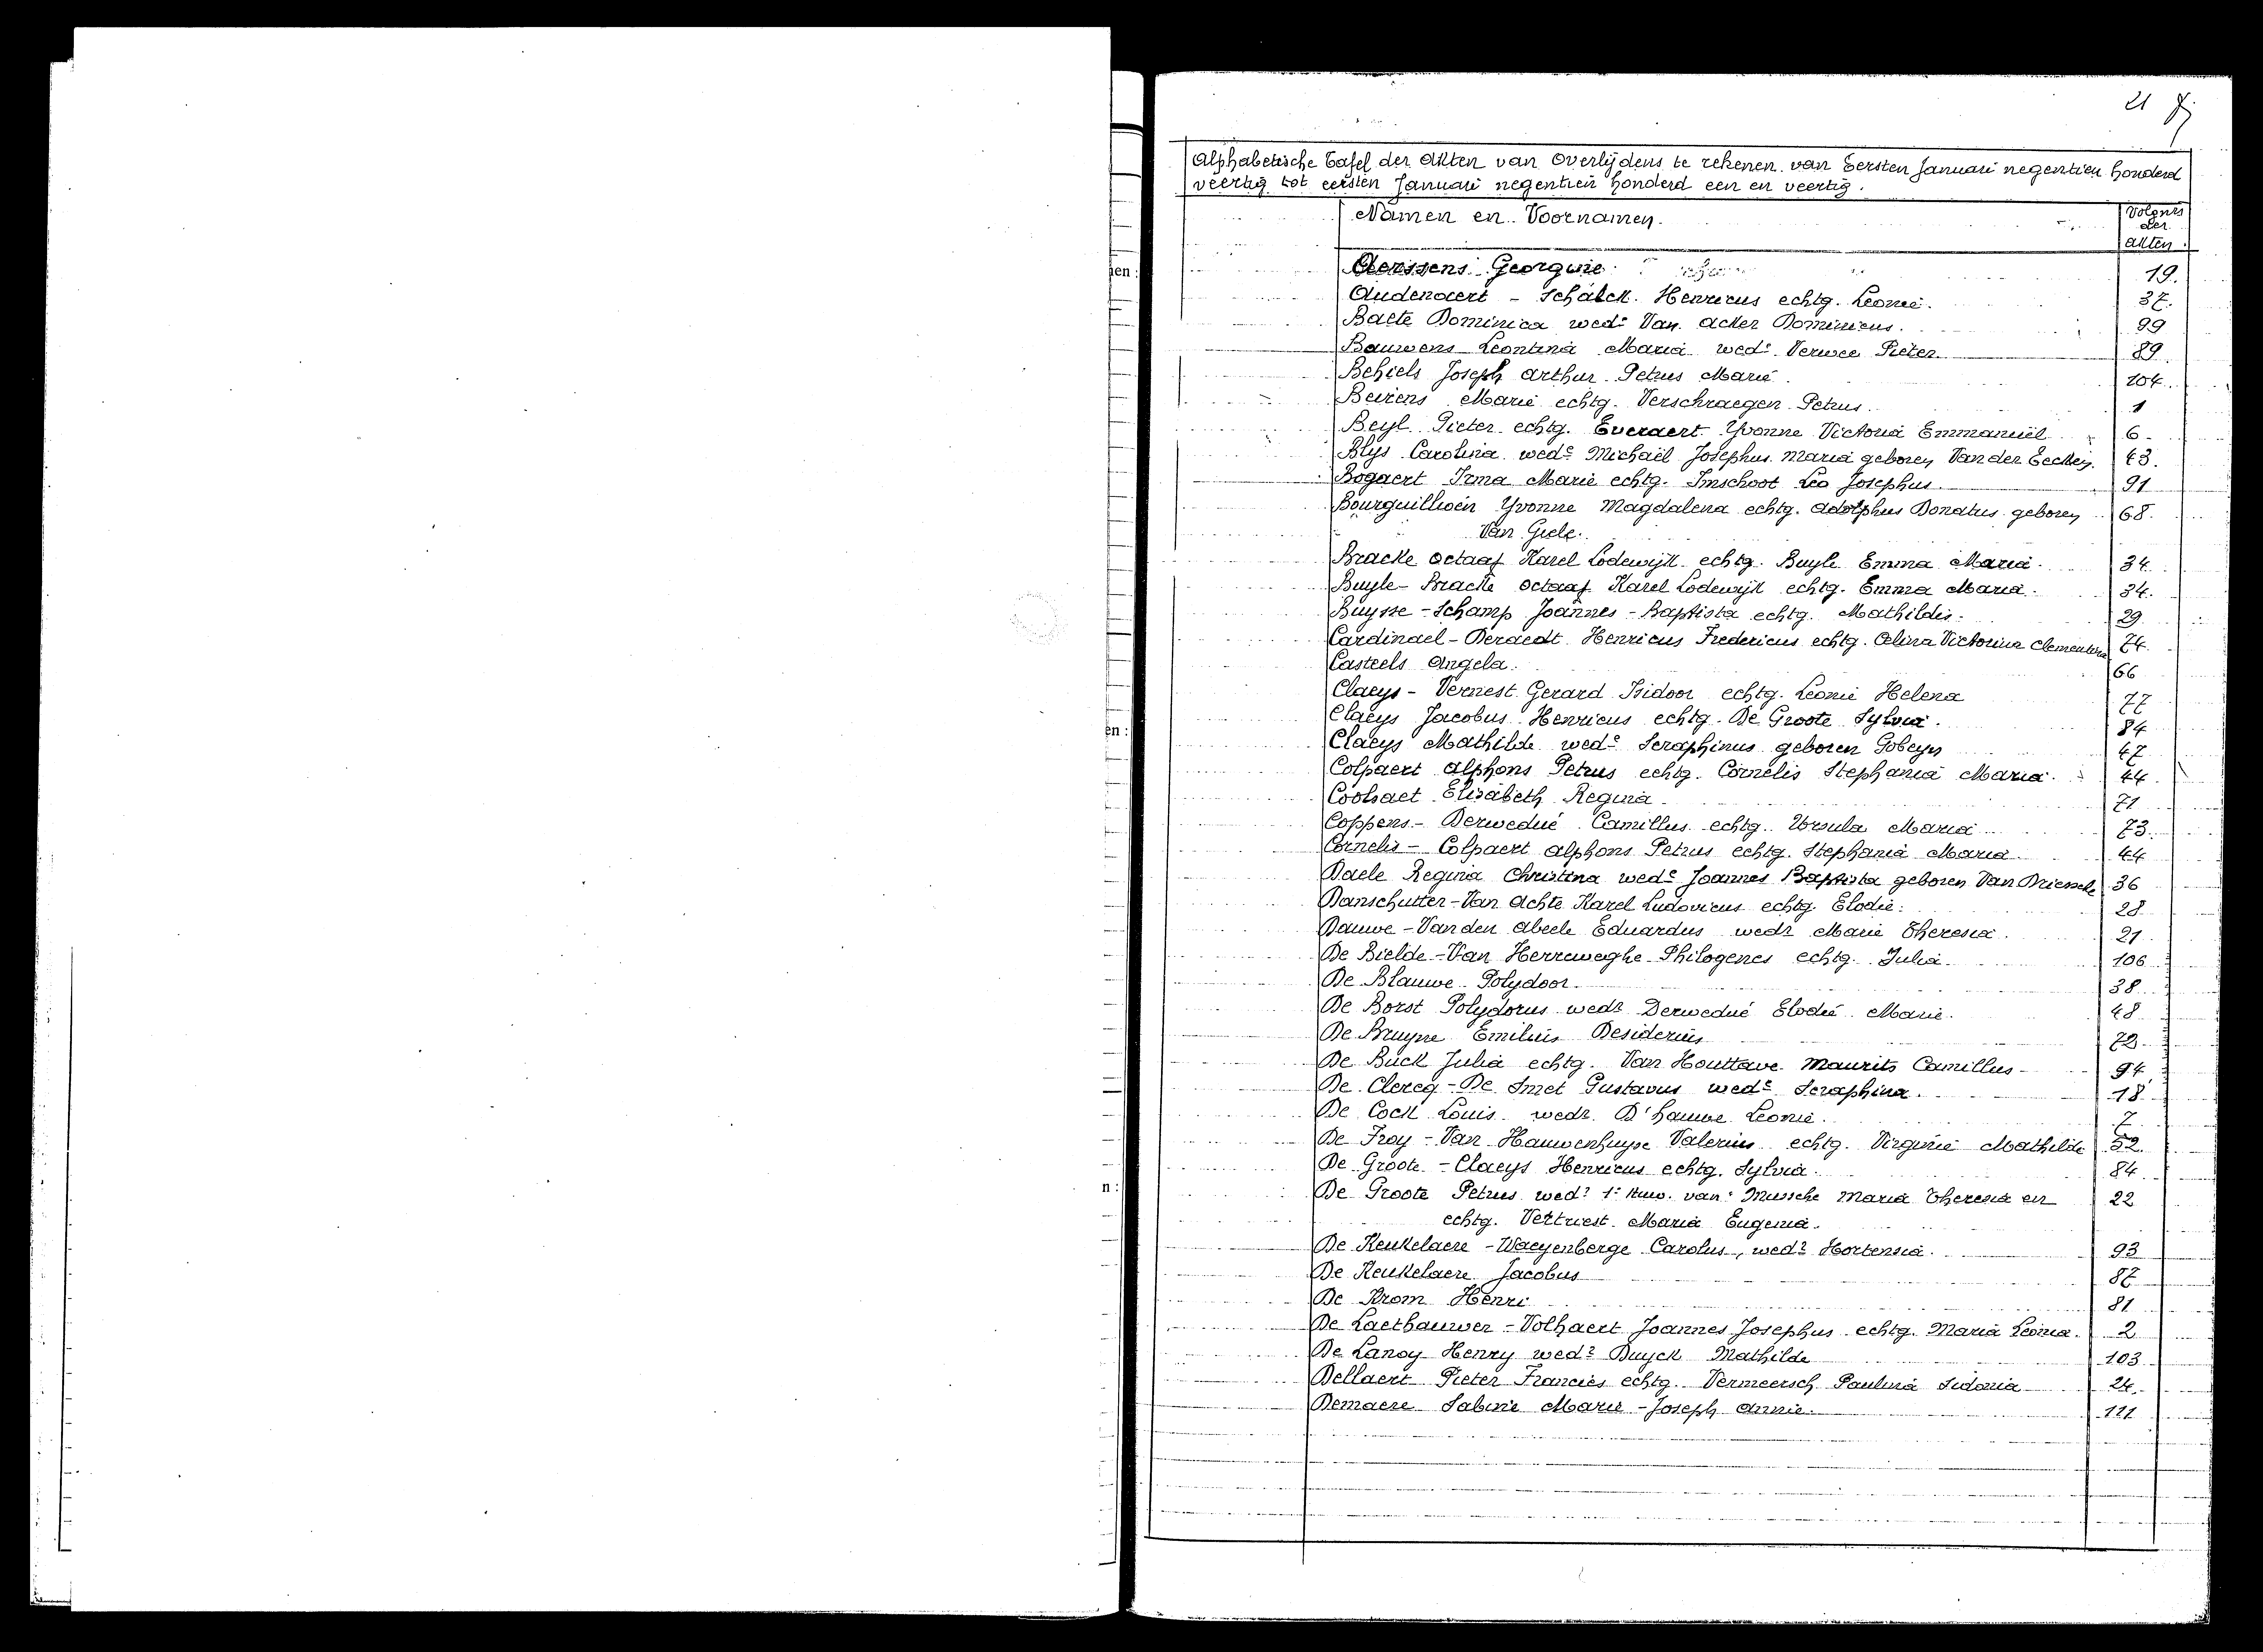 21
Alphabetische Tafel der Akten van Overlijdens te rekenen van Eersten Januari negentien honderd
veertig tot eersten Januari negentien honderd een en veertig.
Namen en Voornamen.
Volgnrs
der
akten.
Georgine 19.
Audenaert - Schalck Henricus echtg. Leonie. 37.
Baete Dominica wede Van Acker Dominicus. 99
Bauwens Leontina Maria wede Verwee Pieter 89
Behiels Joseph Arthur Petrus Marie 104.
Beirens Marie echtg. Verschraegen Petrus. 1
Beyl Pieter echtg. Everaert Yvonne Victoria Emmanuel 6
Blijs Carolina wede Michaël Josephus Maria geboren Van der Eecken. 43.
Bogaert Irma Marie echtg. Imschoot Leo Josephus 91
Bourguillioen Yvonne Magdalena echtg. Adolphus Donatus geboren 68.
Van Giele.
Bracke Octaaf Karel Lodewijk echtg. Buyle Emma Maria. 34
Buyle - Bracke Octaaf Karel Lodewijk echtg. Emma Maria. 34.
Buysse - Schamp Joannes - Baptista echtg. Mathildis. 29
Cardinael - Deraedt Henricus Fredericus echtg. Celina Victorina Clementina 74.
Casteels Angela. 66
Claeys - Vernest Gerard Isidoor echtg. Leonie Helena 77
Claeys Jacobus Henricus echtg. De Groote Sylvia. 84
Claeys Mathilde wede Seraphinus geboren Gobeyn 47
Colpaert Alphons Petrus echtg. Cornelis Stephania Maria. 44
Coolsaet Elisabeth Regina 71
Coppens - Derwedué Camillus echtg. Ursula Maria 73.
Cornelis - Colpaert Alphons Petrus echtg. Stephania Maria. 44
Daele Regina Christina wede Joannes Baptista geboren Van Driessche 36
Danschutter - Van Achte Karel Ludovicus echtg. Elodie. 28
Dauwe - Van den Abeele Eduardus wedr Marie Theresia. 21
De Bielde - Van Herreweghe Philogenes echtg. Julia. 106
De Blauwe Polydoor. 38
De Borst Polydorus wedr Derwedué Elodie Marie. 48
De Bruyne Emilius Desiderius
De Buck Julia echtg. Van Houttave Maurits Camillus 94
De Clercq - De Smet Gustavus wede Seraphina. 18
De Cock Louis wedr. D'hauwe Leonie. 7
De Froy - Van Hauwenhuyse Valerius echtg. Virginie Mathilde 52.
De Groote - Claeys Henricus echtg. Sylvia. 84
De Groote Petrus wedr 1e Huw. van Mussche Maria Theresia en 22
echtg. Vettriest Maria Eugenia.
De Keukelaere - Waeyenberge Carolus, wedr Hortensia. 93
De Keukelaere Jacobus 87
De Krom Henri 81
De Laethauwer - Volhaert Joannes Josephus echtg. Maria Leonia. 2
De Lanoy Henry wedr Buyck Mathilde 103
Dellaert Pieter Francies echtg. Vermeersch Paulina Sidonia 24.
Demaere Sabine Marie - Joseph Annie. 111